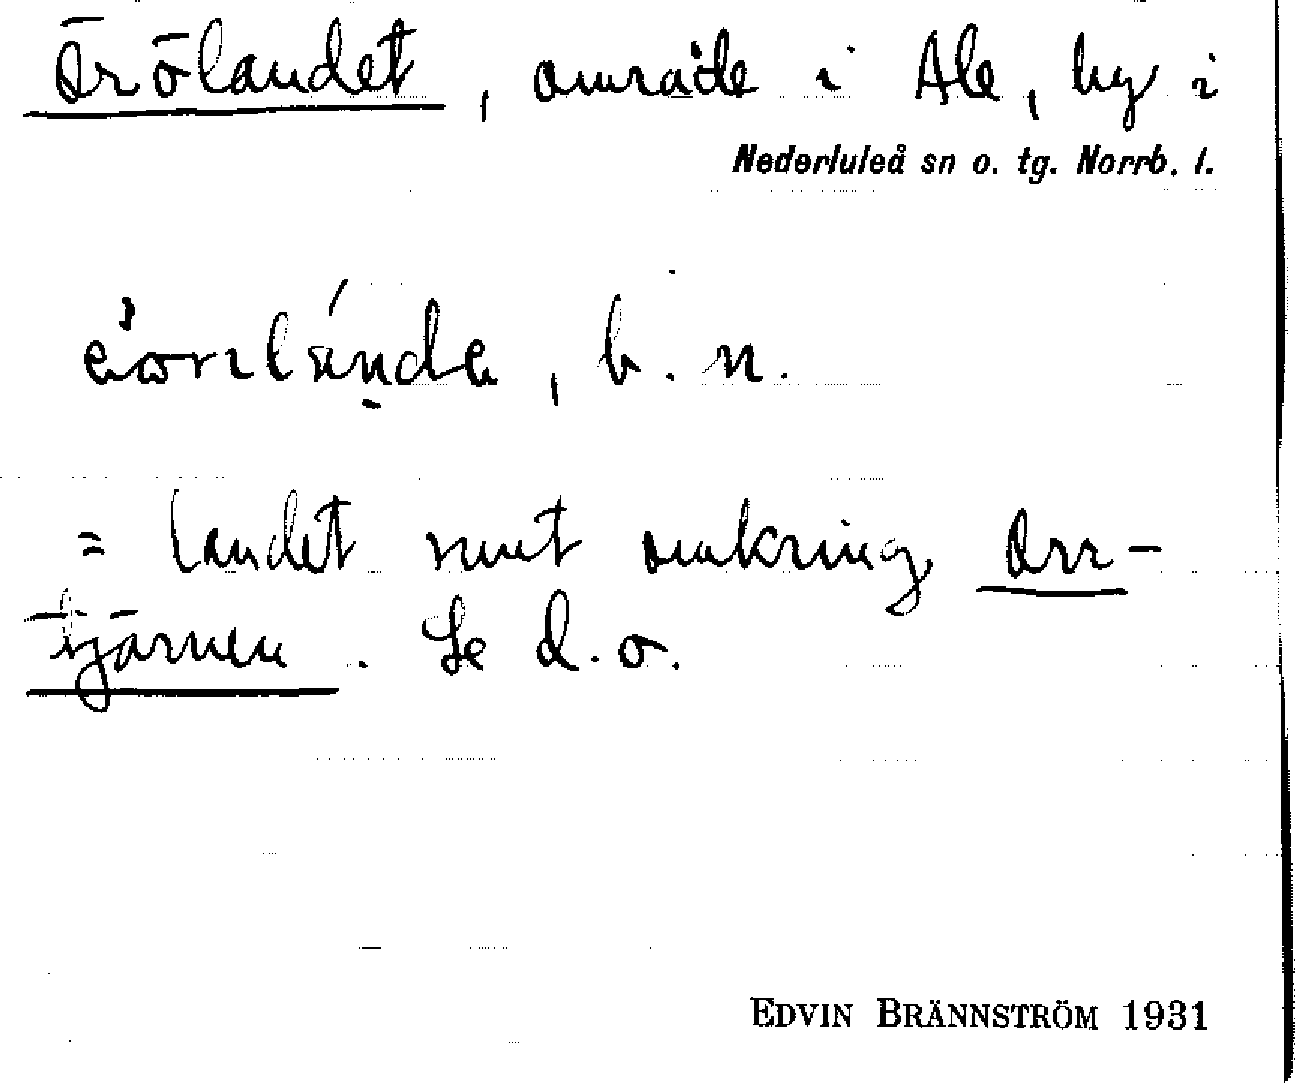 Örölandet, område i Ale, by i
Nederluleå sn o. tg. Norrb. l.
, b. n.
= landet runt omkring Orr-
tjärnen. Se d. o.
EDVIN BRÄNNSTRÖM 1931